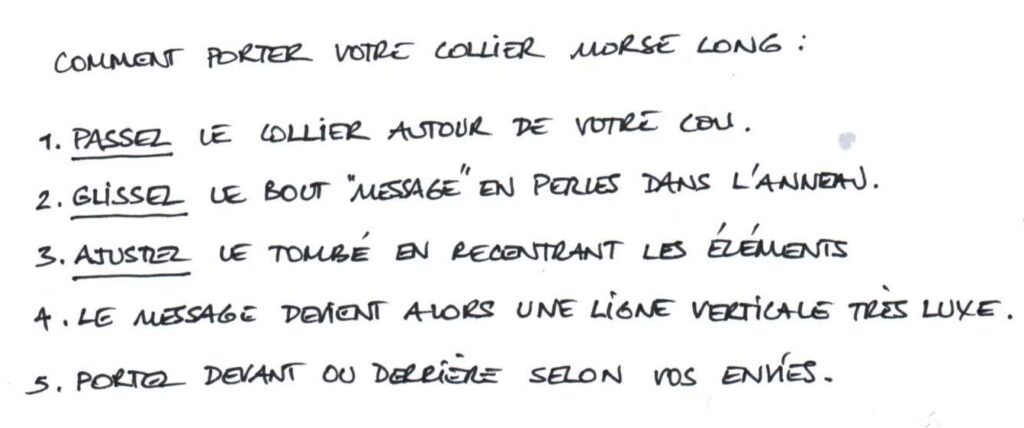 COMMENT PORTER VOTRE COLLIER MORSE LONG :
1. PASSEZ LE COLLIER AUTOUR DE VOTRE COU.
2. GLISSEZ LE BOUT "MESSAGE" EN PERLES DANS L'ANNEAU.
3. AJUSTEZ LE TOMBÉ EN RECENTRANT LES ÉLÉMENTS
4. LE MESSAGE DEVIENT ALORS UNE LIGNE VERTICALE TRÈS LUXE.
5. PORTEZ DEVANT OU DERRIÈRE SELON VOS ENVIES.